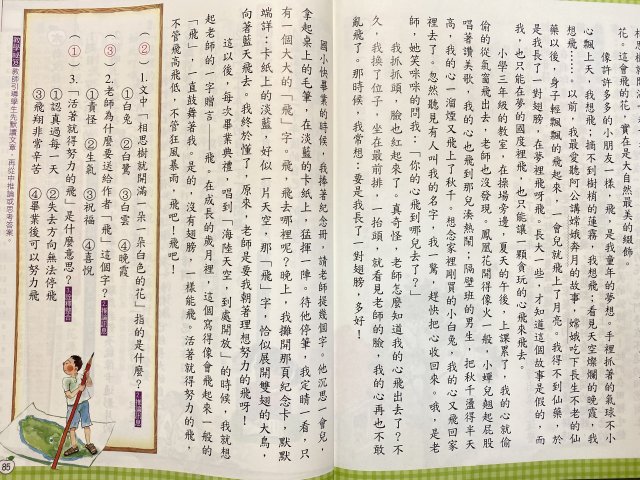 花。這會飛的花，實在是大自然最美的綴飾。
像許許多多的小朋友一樣，飛，是我童年的夢想。手裡抓著的氣球不小
心飄上天，我想飛；摘不到樹梢的蓮霧，我想飛；看見天空燦爛的晚霞，我
想飛……以前，我最愛聽阿公講嫦娥奔月的故事，嫦娥吃下長生不老的仙
藥以後，身子輕飄飄的飛起來，一會兒就飛上了月亮。我得不到仙藥，於
是我長了一對翅膀，在夢裡飛呀飛。長大一些，才知道這個故事是假的，而
我，也只能在夢的國度裡飛，也只能讓一顆貪玩的心飛來飛去。
小學三年級的教室，在操場旁邊。夏天的午後，上課累了，我的心就偷
偷的從氣窗飛出去，老師也沒發現。鳳凰花開得像火一般，小蟬兒翹起屁股
唱著讚美歌，我的心也飛到那兒湊熱鬧；隔壁班的男生，把秋千盪得半天
高，我的心一溜煙又飛上了秋千。想念家裡剛買的小白兔，我的心又飛回家
裡去了。忽然聽見有人叫我的名字，我一驚，趕快把心收回來。哦，是老
師，她笑咪咪的問我：「你的心飛到哪兒去了？」
我抓抓頭，臉也紅起來了。真奇怪，老師怎麼知道我的心飛出去了？不
久，我換了位子，坐在最前排，一抬頭，就看見老師的臉，我的心再也不敢
亂飛了。那時候，我常想：要是我長了一對翅膀，多好！
國小快畢業的時候，我捧著紀念冊，請老師提幾個字，他沉思一會兒，
拿起桌上的毛筆，在淡藍的卡紙上，猛揮一陣。待他停筆，我定睛一看，只
有一個大大的「飛」字。飛，飛去哪裡呢？晚上，我攤開那頁紀念卡，默默
端詳：卡紙上的淡藍，好似一片天空，那「飛」字，恰似展開雙翅的大鳥，
向著藍天飛去。我終於懂了，原來，老師是要我朝著理想努力的飛呀！
這以後，每次畢業典禮，唱到「海陸天空，到處開放」的時候，我就想
起老師的一字贈言——飛。在成長的歲月裡，這個寫得像會飛起來一般的
「飛」，一直鼓舞著我。是的，沒有翅膀，一樣能飛。活著就得努力的飛，
不管飛高飛低，不管狂風暴雨，飛吧！飛吧！
（②）1.文中「相思樹就開滿一朵一朵白色的花」指的是什麼？
①白兔 ②白鷺 ③白雲 ④晚霞
（③）2.老師為什麼要送給作者「飛」這個字？
①責怪 ②生氣 ③祝福 ④喜悅
（①）3.「活著就得努力的飛」是什麼意思？
①認真過每一天 ②失去方向無法停飛
③飛翔非常辛苦 ④畢業後可以努力飛
教師引導學生先默讀文章，再從中推論或思考答案。
85